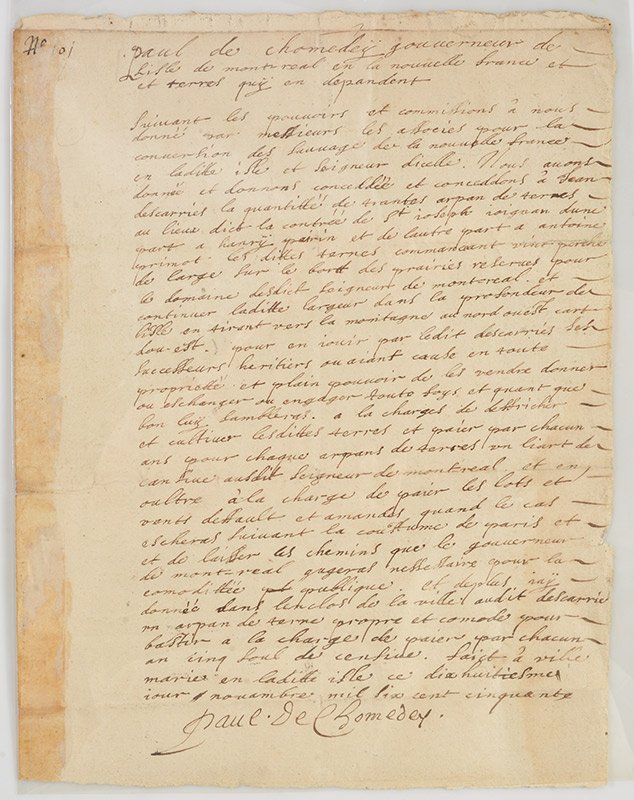 No 101
Paul de chomedey gouverneur de
Lisle de montreal en la nouvelle france et
et terres quy en dependent
Suivant les pouvoirs et commisions à nous
donné par messieurs les associes pour la
conversion des sauvage de la nouvelle france
en ladite isle et Seigneur dicelle. Nous avons
donnée et donnons concedée et conceddons à Jean
descarries la quantitté de trantes arpan de terres
au lieux dict la contrée de St joseph joignan dune
part a hanry perin et de lautre part a antoine
primot. les dittes terres commancant vint perche
de large sur le bort des prairies reserves pour
le domaine desdict seigneur de montoreal. et
continuer laditte largeur dans la profondeur de
lisle en tirant vers la montagne au nord ouest cart
dou-est. pour en jouir par ledit descarries ses
successeurs heritiers ou aiant cause en toute
proprieté et plain pouvoir de les vendre donner
ou eschanger ou engager touto foys et quant que
bon luy sambleras. a la charges de deffricher
et cultiver lesdittes terres et paier par chacun
ans pour chaque arpans de terres un liart de
cansive ausdit seigneur de montreal et en
oultre à la charge de paier les lots et
vents deffault et amandes quand le cas
escheras suivant la coustume de paris et
et de laisser les chemins que le gouverneur
de montreal jugeras nessessaire pour la
comodittée publique. et deplus
donnée dans lenclos de la ville audit descarrie
un arpan de terre propre et comode pour
bastir a la charge de paier par chacun
an cinq soul de censive. faict à ville
marie en laditte isle ce dixhuitiesme
jour novembre mil six cent cinquante
Paul. de Chomedey.